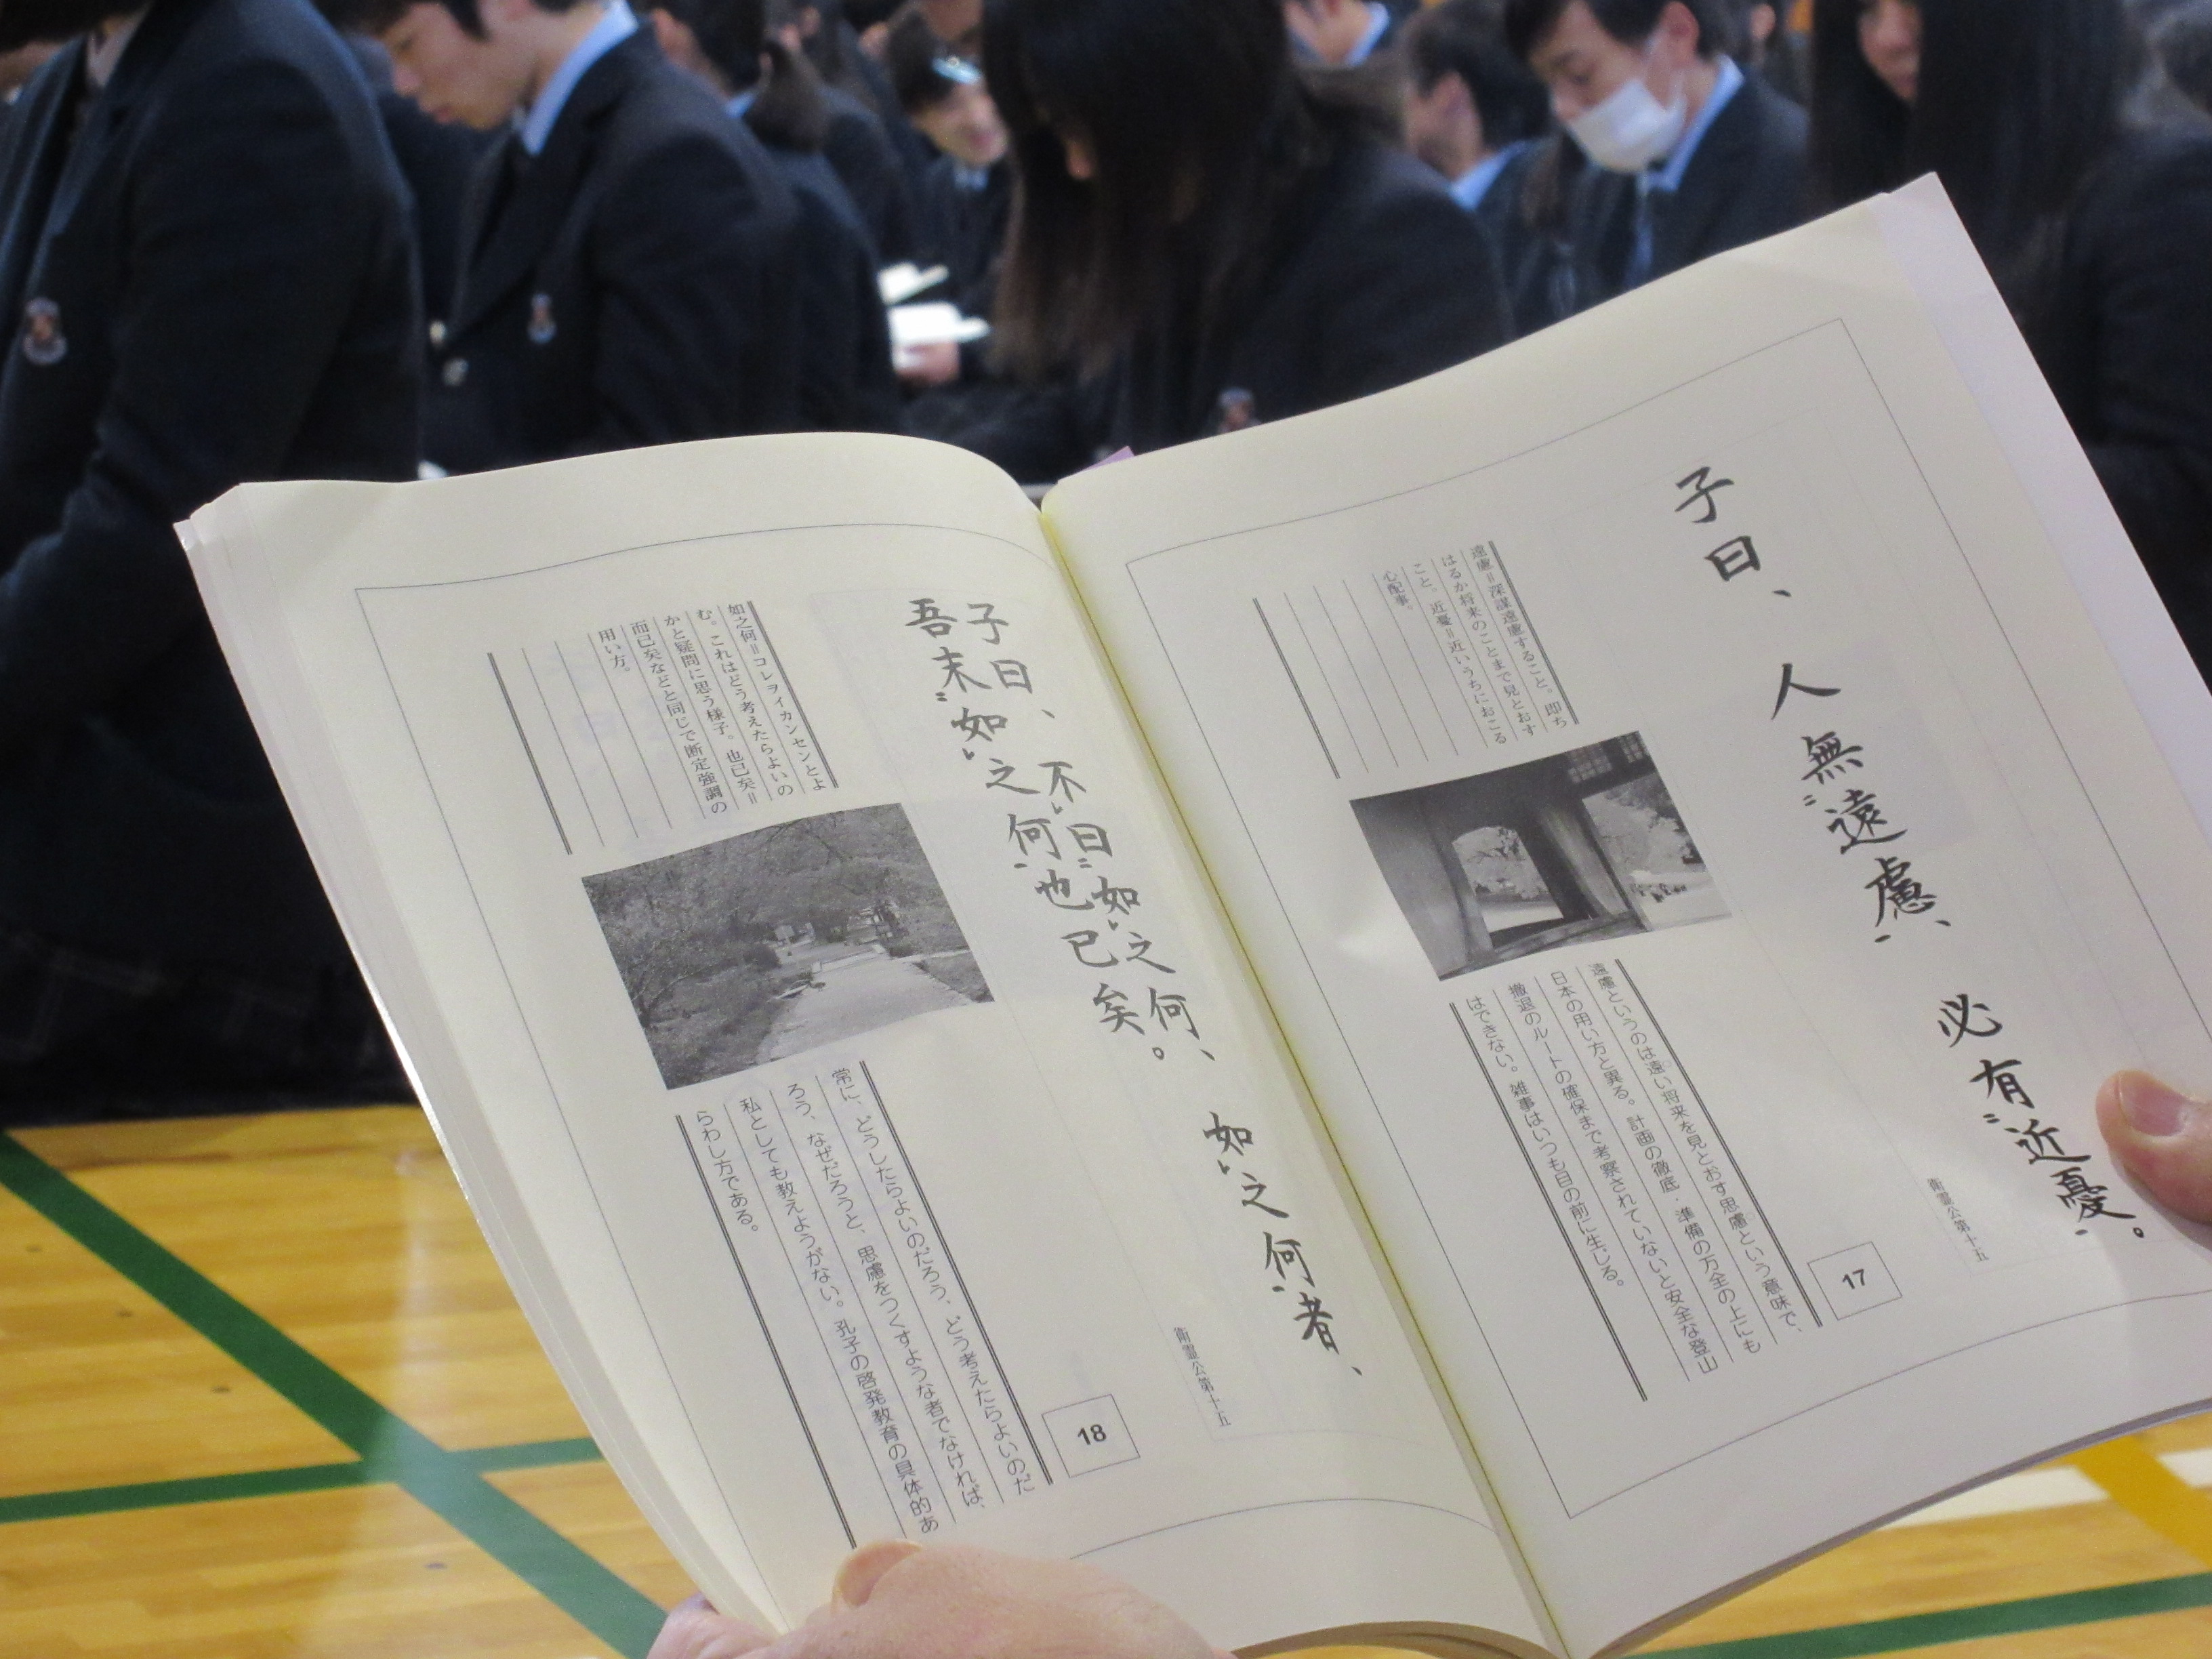 子曰、人無遠慮、必有近憂。
衛霊公第十五
17
遠慮=深謀遠慮すること。即ち
はるか将来のことまで見とおす
こと。近憂=近いうちにおこる
心配事。
遠慮というのは遠い将来を見とおす思慮という意味で、
日本の用い方と異る。計画の徹底・準備の万全の上にも
撤退のルートの確保まで考察されていないと安全な登山
はできない。雑事はいつも目の前に生じる。
子曰、不曰如之何、如之何者、
吾末如之何也已矣。
衛霊公第十五
18
如之何=コレヲイカンセンとよ
む。これはどう考えたらよいの
かと疑問に思う様子。也已矣=
而已矣などと同じで断定強調の
用い方。
常に、どうしたらよいのだろう、どう考えたらよいのだ
ろう、なぜだろうと、思慮をつくすような者でなければ、
私としても教えようがない。孔子の啓発教育の具体的あ
らわし方である。